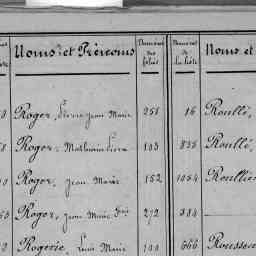 Noms et Prénoms Numéros des folios Numéros de la liste Noms et
Roger, Pierre Jean Marie 251 16 Roullé,
Roger, Mathurin Pierre 103 835 Roullé,
Roger, Jean Marie 152 1054 Roullier
Roger, Jean Marie 272
Rogerie, Louis Marie 100 666 Rousseau